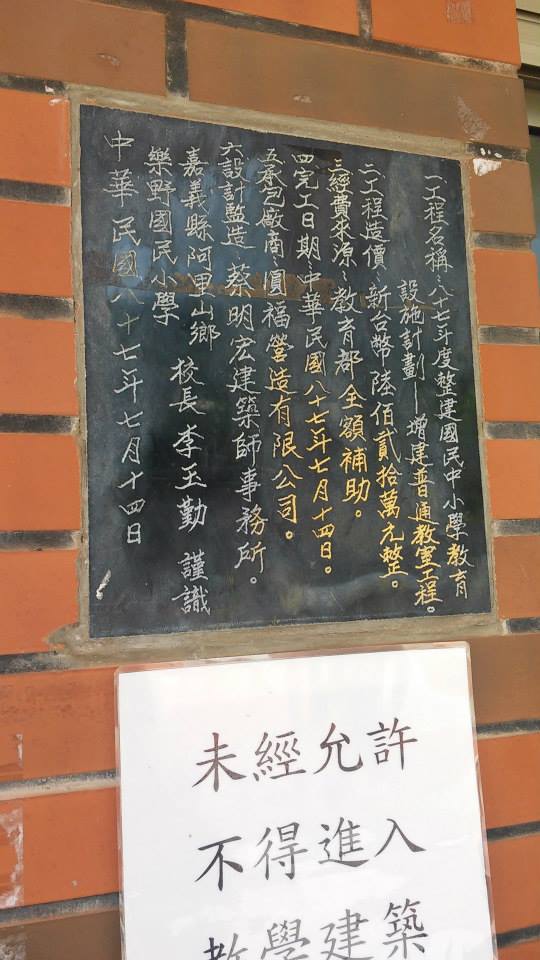 一工程名稱:八十七年度整建國民中小學教育
設施計劃—增建普通教室工程。
二工程造價:新台幣陸佰貳拾萬元整。
三經費來源:教育部全額補助。
四完工日期中華民國八十七年七月十四日。
五承包廠商:圓福營造有限公司。
六設計監造:蔡明宏建築師事務所。
嘉義縣阿里山鄉
樂野國民小學
校長李玉勤 謹識
中華民國八十七年七月十四日
未經允許
不得進入
教學建築